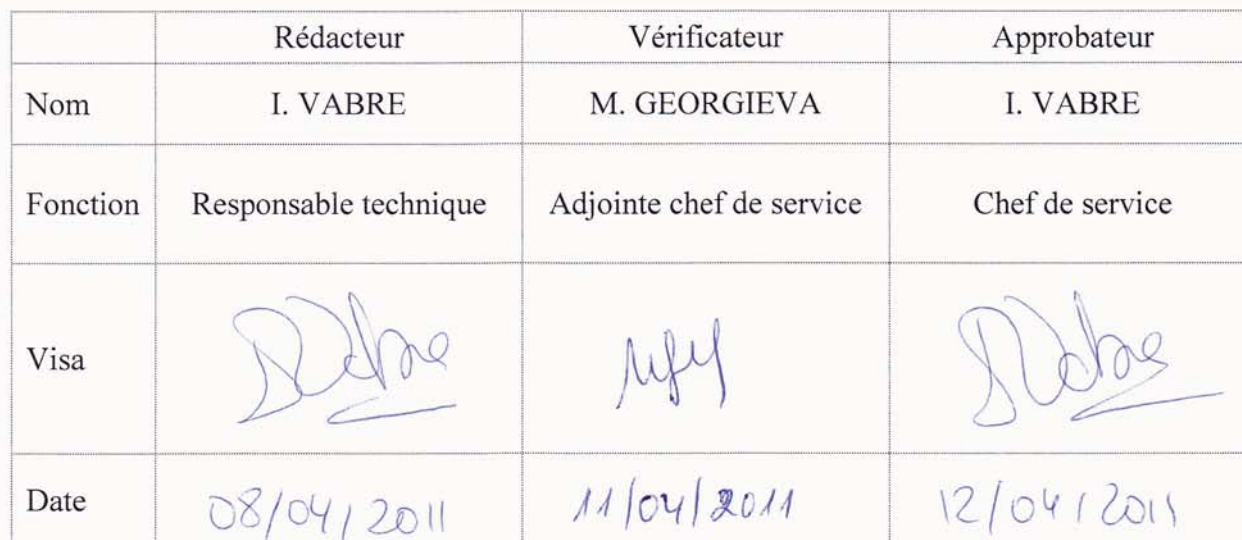 Rédacteur Vérificateur Approbateur
Nom I. VABRE M. GEORGIEVA I. VABRE
Fonction Responsable technique Adjointe chef de service Chef de service
Visa
Date 08/04/2011 11/04/2011 12/04/2011